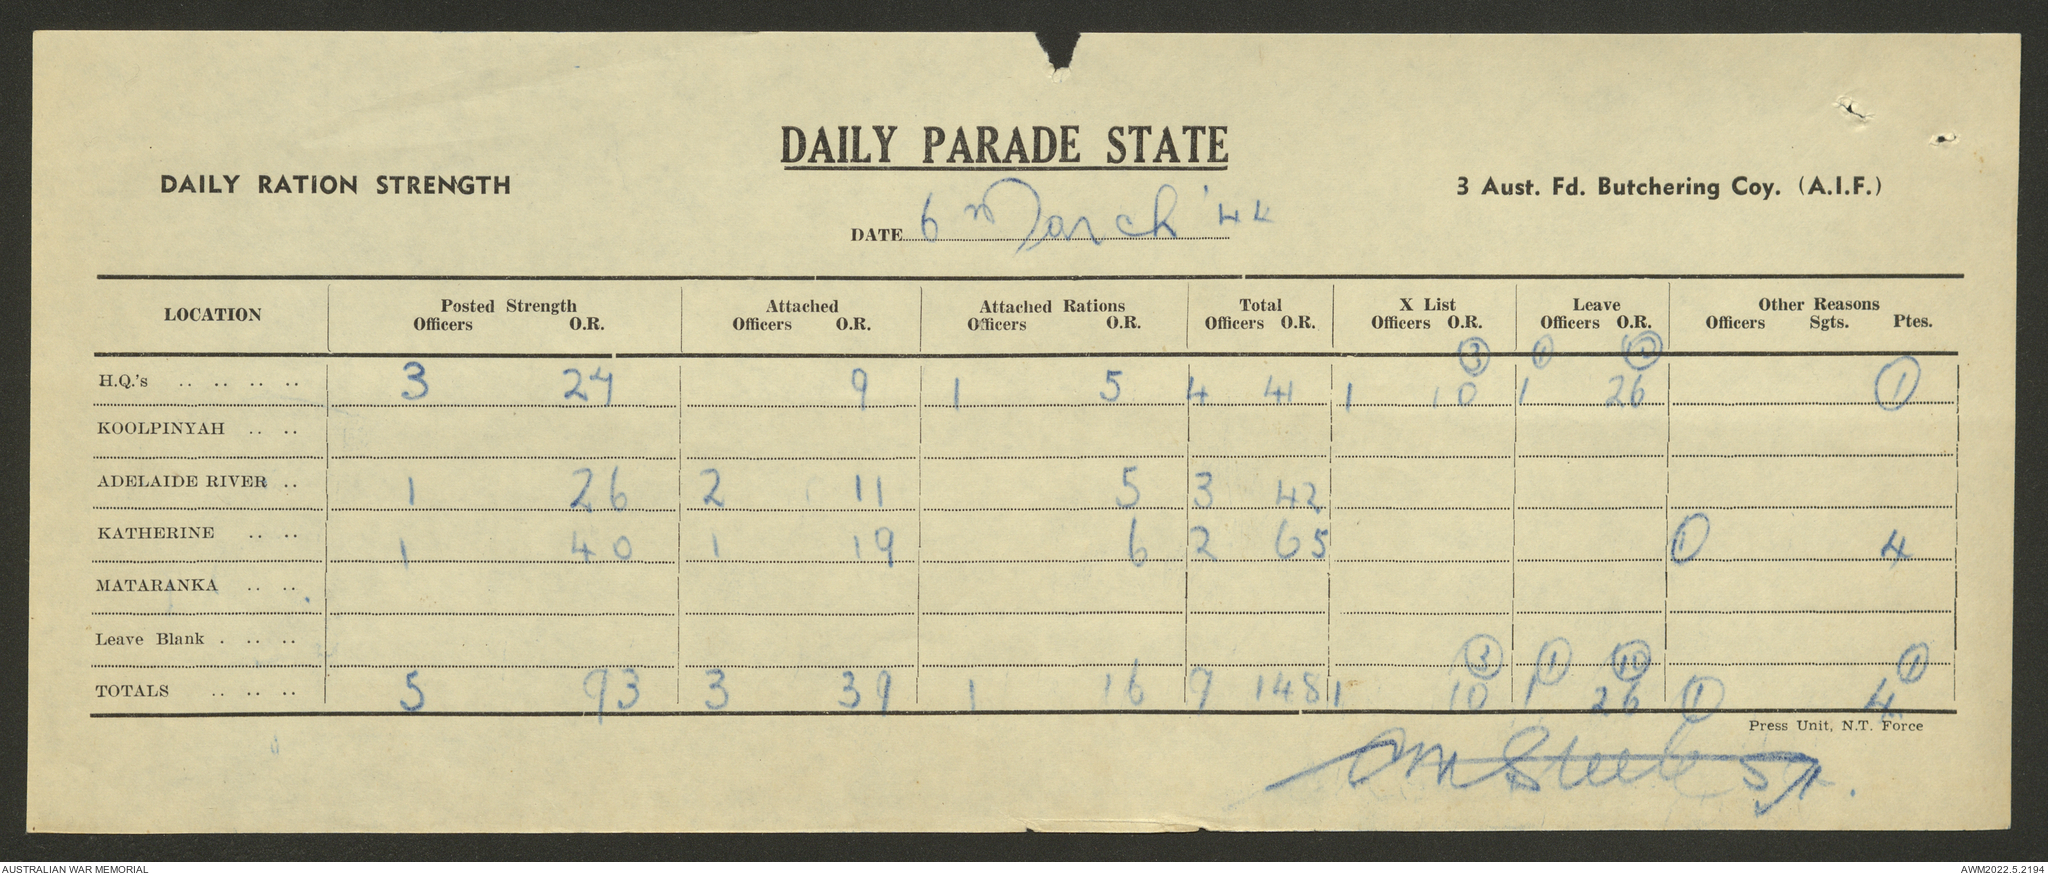 DAILY PARADE STATE
DAILY RATION STRENGTH
3 Aust. Fd. Butchering Coy. (A.I.F.)
DATE 6 March '44
LOCATION Posted Strength Attached Attached Rations Total X List Leave Other Reasons
Officers O.R. Officers O.R. Officers O.R. Officers O.R. Officers O.R. Officers O.R. Officers Sgts. Ptes.
3 1
H.Q.'s .. .. .. .. 3 27 9 1 5 4 41 1 10 1 26 1
KOOLPINYAH .. ..
ADELAIDE RIVER .. 1 26 2 11 5 3 42
KATHERINE .. .. 1 40 1 19 6 2 65 1 4
MATARANKA .. ..
Leave Blank . .. ..
3 1 10 1
TOTALS .. .. .. 5 93 3 39 1 16 9 148 1 10 1 26 1 4
Press Unit, N.T. Force
Steele
AUSTRALIAN WAR MEMORIAL
AWM2022.5.2194